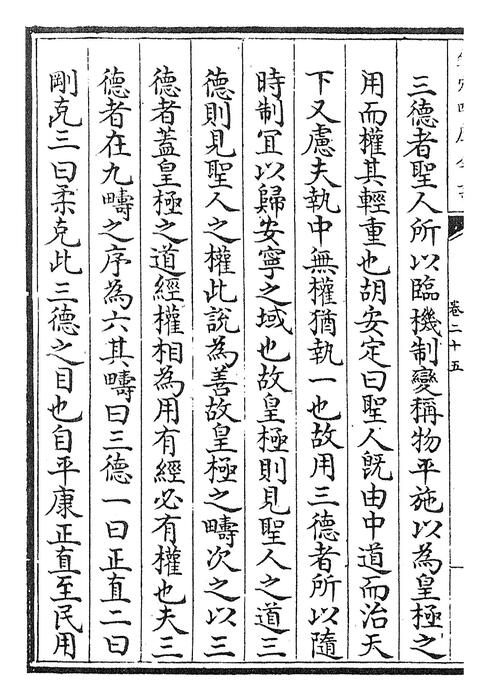 三德者聖人所以臨機制變稱物平施以為皇極之
用而權其輕重也胡安定曰聖人既由中道而治天
下又慮夫執中無權猶執一也故用三德者所以隨
時制冝以歸安寧之域也故皇極則見聖人之道三
德則見聖人之權此說為善故皇極之疇次之以三
德者蓋皇極之道經權相為用有經必有權也夫三
德者在九疇之序為六其疇曰三德一曰正直二曰
剛克三曰柔克此三德之目也自平康正直至民用
卷二十五